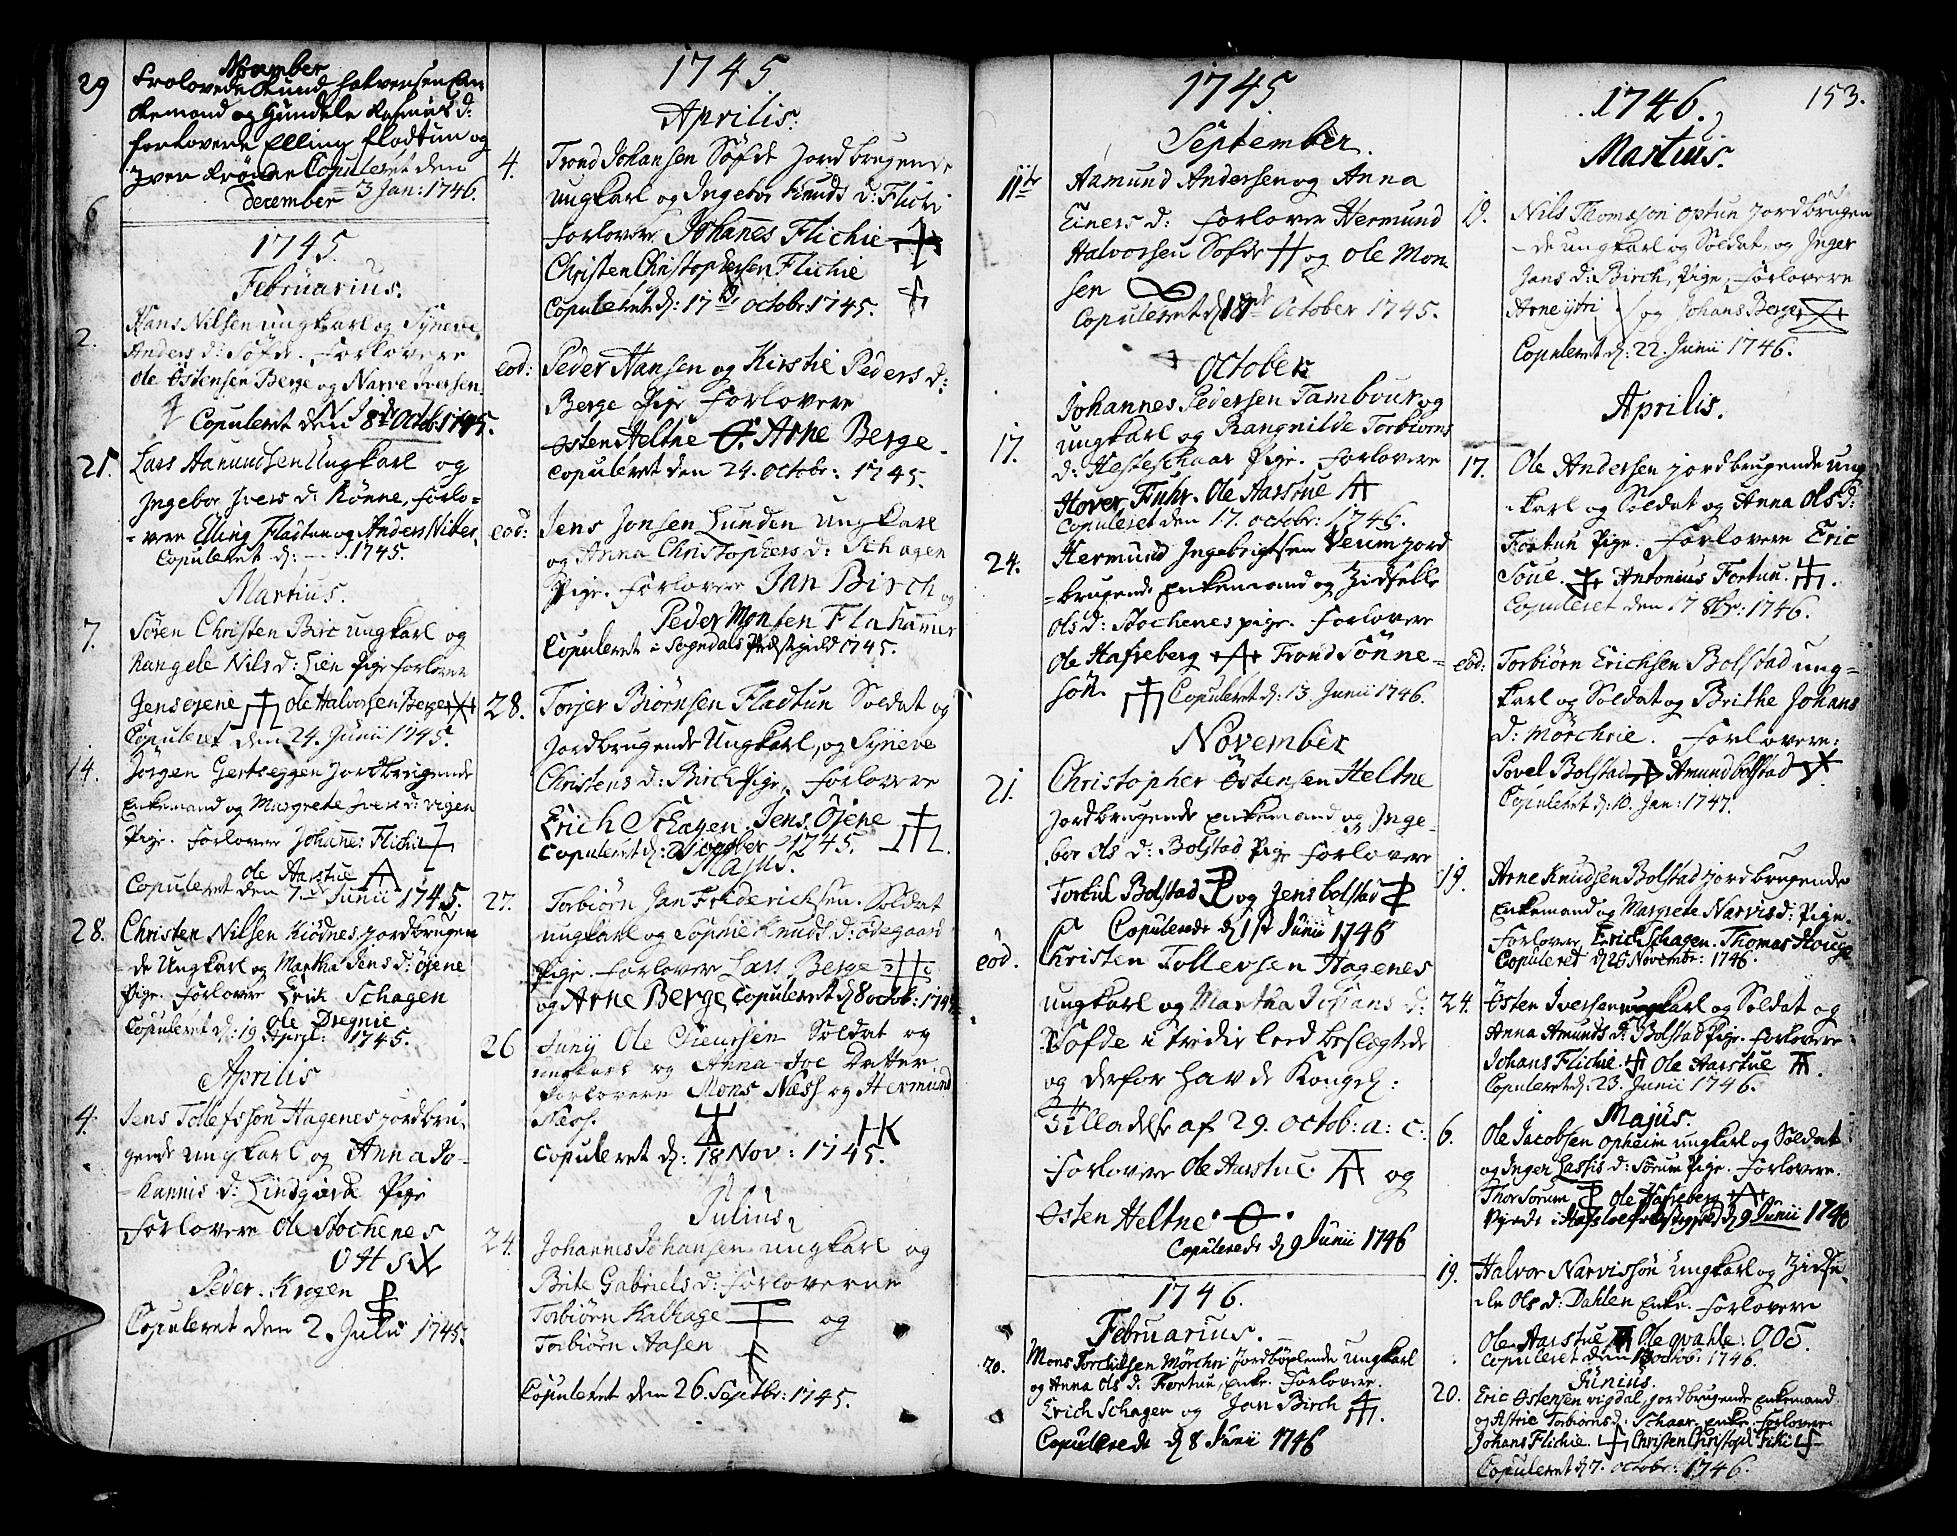 November
29 Trolovede Knud Halvorsen En-
kemand og Gundele Rasmus d:
forlovere Elling Fladtun og
Iver Copuleret den
December = 3 Jan: 1746.
6
1745.
Februarius.
2. Hans Nilsen ungkarl og Synneve
Anders d: Søfde. Forlovere
Ole Østensen Berge og Narve Iversen
Copuleret den 8de Octob: 1745.
25. Lars Aamundsen Ungkarl og
Ingebor Ivers d: Rønne, forlo-
-vere Elling Fladtun og Anders
Copuleret d: — 1745.
Martius.
7. Søren Christen Birc ungkarl og
Rangele Nils d: Lien Pige forlover
Jens øjene Ole Halvorsen Berge
Copuleret den 24. Junii 1745.
14. Jørgen Gertseggen Jordbrugende
Enkemand og Margrete Ivers d: vigen
Pige. Forlover Johannes Flichie
Ole Aarstue A
Copuleret den 7de Junii 1745.
28. Christen Nilsen Kiødnes jordbrugen
de Ungkarl og Martha Jens d: Øjene
Pige. Forlovere Erik Schagen
Ole Dregnie
Copuleret d: 19 April: 1745.
Aprilis
4. Jens Tollefssøn Hagenes jordbru-
gende ungkarl og Anna Jo-
-hannis d: Lindgierde Pige
Forlovere Ole Stochenes
O H S
Peder Krogen
Copuleret den 2. Julii 1745.
1745
Aprilis.
4. Trond Johansen Søfde Jordbrugende
ungkarl og Ingebor Knuds d: Flichi
Forlovere Johannes Flichie
Christen Christophersen Flichie
Copuleret d: 17de October 1745.
eod: Peder Hansen og Kirstie Peders d:
Berge Pige Forlovere
Østen Heltne Arne Berge.
Copuleret den 24. Octobr: 1745.
eod: Jens Jonsen Lunden ungkarl
og Anna Christophers d: Schagen
Pige. Forlovere Jan Birch og
Peder Monsen Flahamer
Copuleret i Sogndals Præstgield 1745.
28. Torjer Biørnsen Fladtun Soldat og
jordbrugende Ungkarl, og Syneve
Christens d: Birch Pige. Forlovere
Erich Schagen Jens Øjene
Copuleret d: October 1745.
Majus.
27. Torbiørn Jan Frederichsen. Soldat
ungkarl og Sophie Knuds d: Ødegaard
Pige. Forlovere Lars Berge
og Arne Berge Copuleret d 8 octob: 1745
26 Junij Ole Soldat og
ungkarl og Anna Datter
Forlovere Mons Næss og Hermund
Næss. HK
Copuleret d: 18 Nov: 1745.
Julius
24. Johannes Johansen ungkarl og
Brite Gabriels d: Forloverne
Torbiørn Kalhage og
Torbiørn Aasen
Copuleret den 26. Septbr: 1745.
1745
September.
11te Aamund Andersen og Anna
Einers d: Forlover Hermund
Halvorsen Søfde og Ole Mon
sen
Copuleret d October 1745.
October
Johannes Pedersen Tambour og
17. ungkarl og Rangnilde Torbiørns
d: Hesteschaar Pige. Forlovere
Hover Fuhr. Ole Aarstue A
Copuleret den 17. octobr: 1746.
24. Hermund Ingebrigtsen Verum jord
-brugende enkemand og Zidselle
Ols d: Stochenes pige. Forlovere
Ole Hafreberg Trond Sønne-
søn. Copuleret d: 13. Junii 1746.
November
21. Christopher Østensen Heltne
Jordbrugende enkemand og Inge-
bor Ols d: Bolstad Pige Forlovere
Torkil Bolstad og Jens bolstad
Copulerede d 1st Junii 1746
eod. Christen Tollevsen Hagenes
ungkarl og Martha Johans d:
Søfde i tredie leed beslegtede
og derfor havde Kongel:
Tilladelse af 29. octob: a: c:
Forlovere Ole Aarstue. A og
Østen Heltne
Copulerede d 9 Junii 1746
1746.
Februarius.
20. Mons Torchilsen Mørchri Jordbøxlende ungkarl
og Anna Ols d: Fortun, Enke. Forlovere.
Erich Schagen og Jan Birch
Copulerede d 8 Junii 1746
153.
1746.
Martius.
Nils Thomæson Optun jordbrugen
-de ungkarl og Soldat, og Inger
Jans d: Birch, Pige, Forlovere
Arne ytri og Johans Berge
Copuleret d: 22. Junii 1746.
Aprilis.
17. Ole Andersen jordbrugende ung
-karl og Soldat og Anna Ols d:
Fortun Pige. Forlovere Eric
Soue. Antonius Fortun.
Copuleret den 17 8br: 1746.
eod: Torbiørn Erichsen Bolstad ung-
karl og Soldat og Brithe Johans
d: Mørchrie. Forlovere:
Povel Bolstad Amund bolstad
Copuleret d: 10. Jan: 1747.
19. Arne Knudsen Bolstad jordbrugende
Enkemand og Margrete Narvis d: Pige.
Forlovere Erich Schagen. Thomas Houge
Copuleret d Novembr: 1746.
24. Østen Iversen ungkarl og Soldat og
Anna Amunds d: Bolstad Pige. Forlovere
Johans Flichie. Ole Aarstue A.
Copuleret d: 23. Junii 1746.
Majus.
6. Ole Jacobsen Opheim ungkarl og Soldat
og Inger Lassis d: Sørum Pige. Forlovere.
Thor Sorum Ole Hafreberg
d 9 Junii 1746
19. Halvor Narvissøn Ungkarl og Zidse-
-le Ols d: Dahlen Enke. Forlovere
Ole Aarstue Ole qvahle. O O S.
Copuleret den octob: 1746.
Junius.
20. Eric Østensen vigdal, jordbrugende enkemand
og Astrie Torbiørns d: Schaar. enke. Forlovere
Johans Flichie. Christen Christoph Fliki
Copuleret d 7. octobr: 1746.